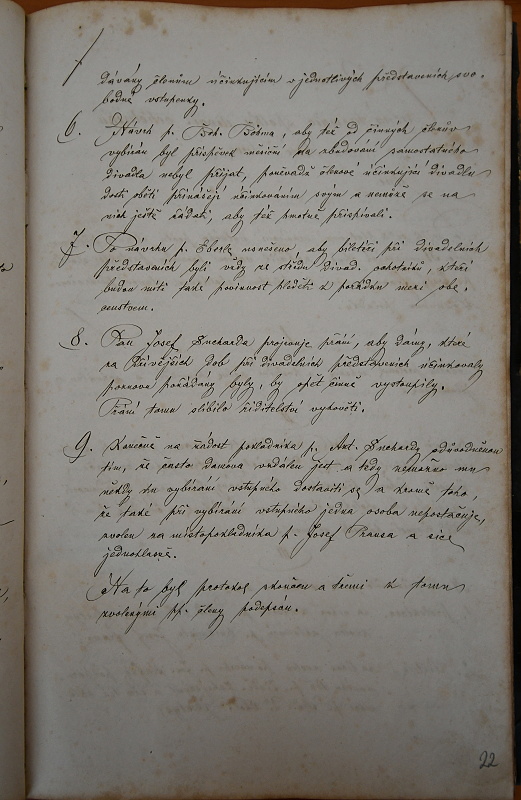 dávány členům účinkujícím v jednotlivých představeních svo-
bodné vstupenky.
6. Návrh p. Boh. Böhma, aby též od činných členův
vybírán byl příspěvek měsíční na zbudování samostatného
divadla nebyl přijat, poněvadž členové účinkující divadlu
dosti oběti přinášejí účinkováním svým a nemůže se na
nich ještě žádati, aby též hmotně přispívali.
7. Po návrhu p. Eberle usnešeno, aby biletéři při divadelních
představeních byli vždy ze středu divad. ochotníků, kteří
budou míti také povinnost hleděti k pořádku mezi obe-
censtvem.
8. Pan Josef Suchardа projevuje přání, aby dámy, které
za dřívějších dob při divadelních představeních účinkovaly
poznovu požádány byly, by opět činně vystoupily.
Přání tomu slíbilo ředitelství vyhověti.
9. Konečně na žádost pokladníka p. Ant. Suchardy odůvodněnou
tím, že často domova vzdálen jest a tedy nemožno mu
někdy ku vybírání vstupného dostaviti se, a kromě toho,
že také při vybírání vstupného jedna osoba nepostačuje,
zvolen za místopokladníka p. Josef Prausa a sice
jednohlasně.
Na to byl protokol skončen a třemi k tomu
zvolenými pp. členy podepsán.
22